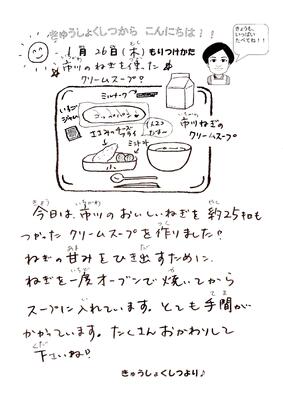 きゅうしょくしつから こんにちは!!
きょうも、
いっぱい
たべてね!!
1月26日(木)もりつけかた
市川のねぎを使った
クリームスープ?
ミルナーク
いちご
ジャム
コッペパン
ミニト
市川ねぎの
クリームスープ
小
今日は、市川のおいしいねぎを約25キロも
つかったクリームスープを作りました?
ねぎの甘みをひき出すために、
ねぎを一度オーブンで焼いてから
スープに入れています。とても手間が
かかっています。たくさんおかわりして
下さいね?
きゅうしょくしつより♪